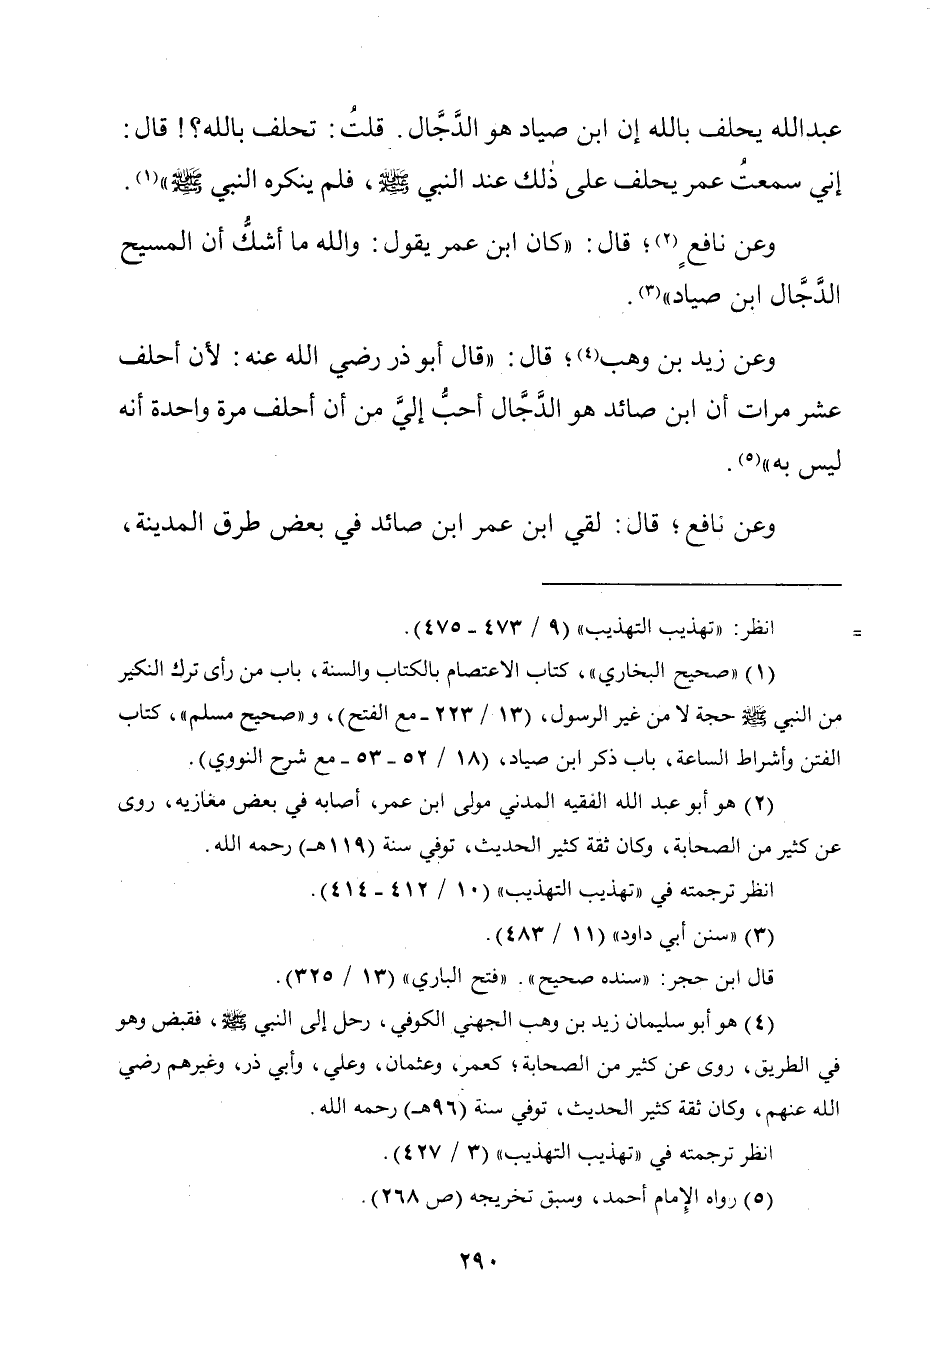 عبدالله يحلف بالله إن ابن صياد هو الدَّجَّال. قلتُ: تحلف بالله؟! قال:
إني سمعتُ عمر يحلف على ذٰلك عند النبي ﷺ، فلم ينكره النبي ﷺ»(١).
وعن نافعٍ(٢)؛ قال: «كان ابن عمر يقول: والله ما أشكُّ أن المسيح
الدَّجَّال ابن صياد»(٣).
وعن زيد بن وهب(٤)؛ قال: «قال أبو ذر رضي الله عنه: لأن أحلف
عشر مرات أن ابن صائد هو الدَّجَّال أحبُّ إليَّ من أن أحلف مرة واحدة أنه
ليس به»(٥).
وعن نافع؛ قال: لقي ابن عمر ابن صائد في بعض طرق المدينة،
= انظر: «تهذيب التهذيب» (٩ / ٤٧٣ - ٤٧٥).
(١) «صحيح البخاري»، كتاب الاعتصام بالكتاب والسنة، باب من رأى ترك النكير
من النبي ﷺ حجة لا من غير الرسول، (١٣ / ٢٢٣ - مع الفتح)، و«صحيح مسلم»، كتاب
الفتن وأشراط الساعة، باب ذكر ابن صياد، (١٨ / ٥٢ - ٥٣ - مع شرح النووي).
(٢) هو أبو عبد الله الفقيه المدني مولى ابن عمر، أصابه في بعض مغازيه، روى
عن كثير من الصحابة، وكان ثقة كثير الحديث، توفي سنة (١١٩هـ) رحمه الله.
انظر ترجمته في «تهذيب التهذيب» (١٠ / ٤١٢ - ٤١٤).
(٣) «سنن أبي داود» (١١ / ٤٨٣).
قال ابن حجر: «سنده صحيح». «فتح الباري» (١٣ / ٣٢٥).
(٤) هو أبو سليمان زيد بن وهب الجهني الكوفي، رحل إلى النبي ﷺ، فقبض وهو
في الطريق، روى عن كثير من الصحابة؛ كعمر، وعثمان، وعلي، وأبي ذر، وغيرهم رضي
الله عنهم، وكان ثقة كثير الحديث، توفي سنة (٩٦هـ) رحمه الله.
انظر ترجمته في «تهذيب التهذيب» (٣ / ٤٢٧).
(٥) رواه الإمام أحمد، وسبق تخريجه (ص ٢٦٨).
٢٩٠